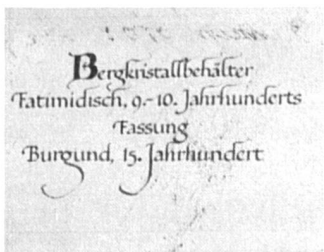 Bergkristallbehälter
Fatimidisch, 9.-10. Jahrhunderts
Fassung
Burgund, 15. Jahrhundert